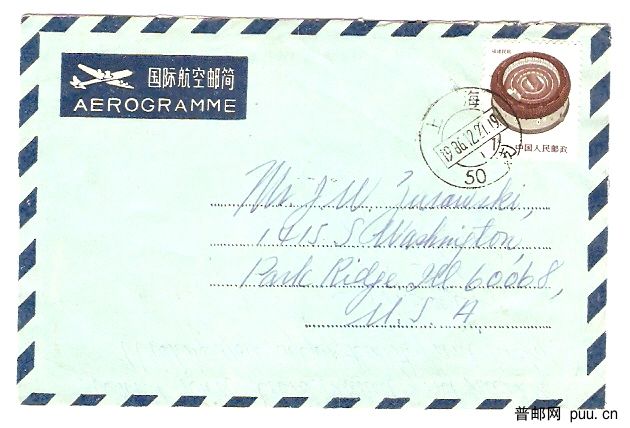 国际航空邮简
AEROGRAMME
福建民居
中国人民邮政
上海
1986.12.21.19
50
Mr. J W. Zurawski,
1415 S Washington,
Park Ridge, Ill 60068,
U. S. A
普邮网 puu.cn